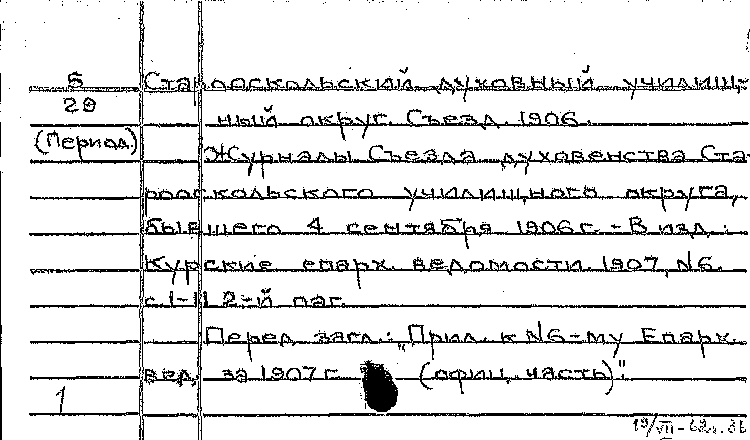 Б
29
(Период.)
Старооскольский духовный училищ-
ный округ. Съезд. 1906.
Журналы Съезда духовенства Ста-
рооскольского училищного округа,
бывшего 4 сентября 1906 г. - В изд.:
Курские епарх. ведомости. 1907, N6.
с. 1-11 2-й паг.
Перед загл.: „Прил. к N6-му Епарх.
вед. за 1907 г. (офиц. часть)".
1
19/VII-62г.